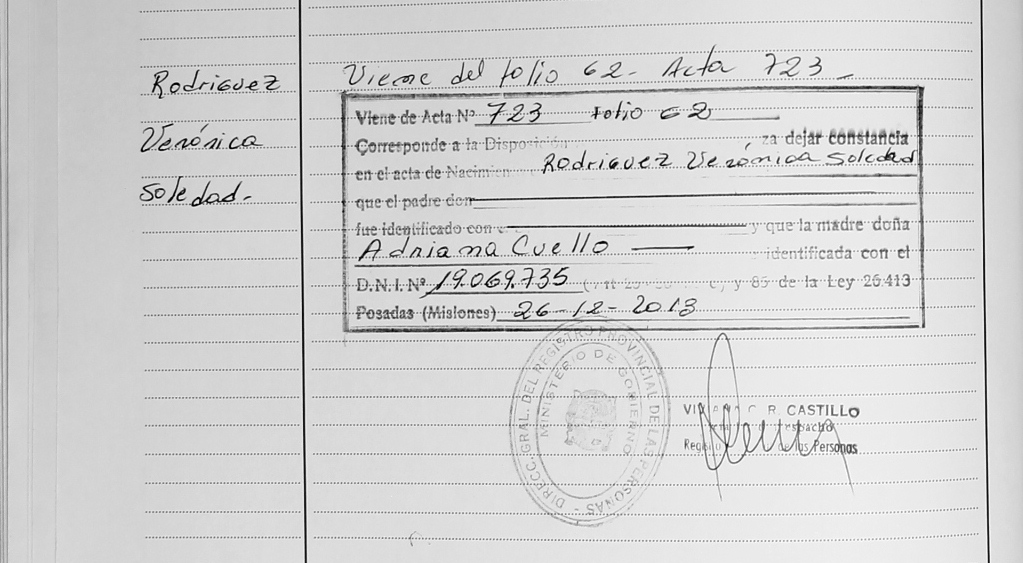 Rodriguez
Verónica
Soledad.
Viene del folio 62. Acta 723
Viene de Acta Nº 723 folio 62
Corresponde a la Disposición za dejar constancia
en el acta de Nacimien Rodriguez Verónica Soledad
que el padre don
fue identificado con y que la madre doña
Adriana Cuello identificada con el
D.N.I. Nº 19.069.735 y 85 de la Ley 26.413
Posadas (Misiones) 26-12-2013
DIRECC. GRAL. DEL REGISTRO PROVINCIAL DE LAS PERSONAS
MINISTERIO DE GOBIERNO
R. CASTILLO
de las Personas